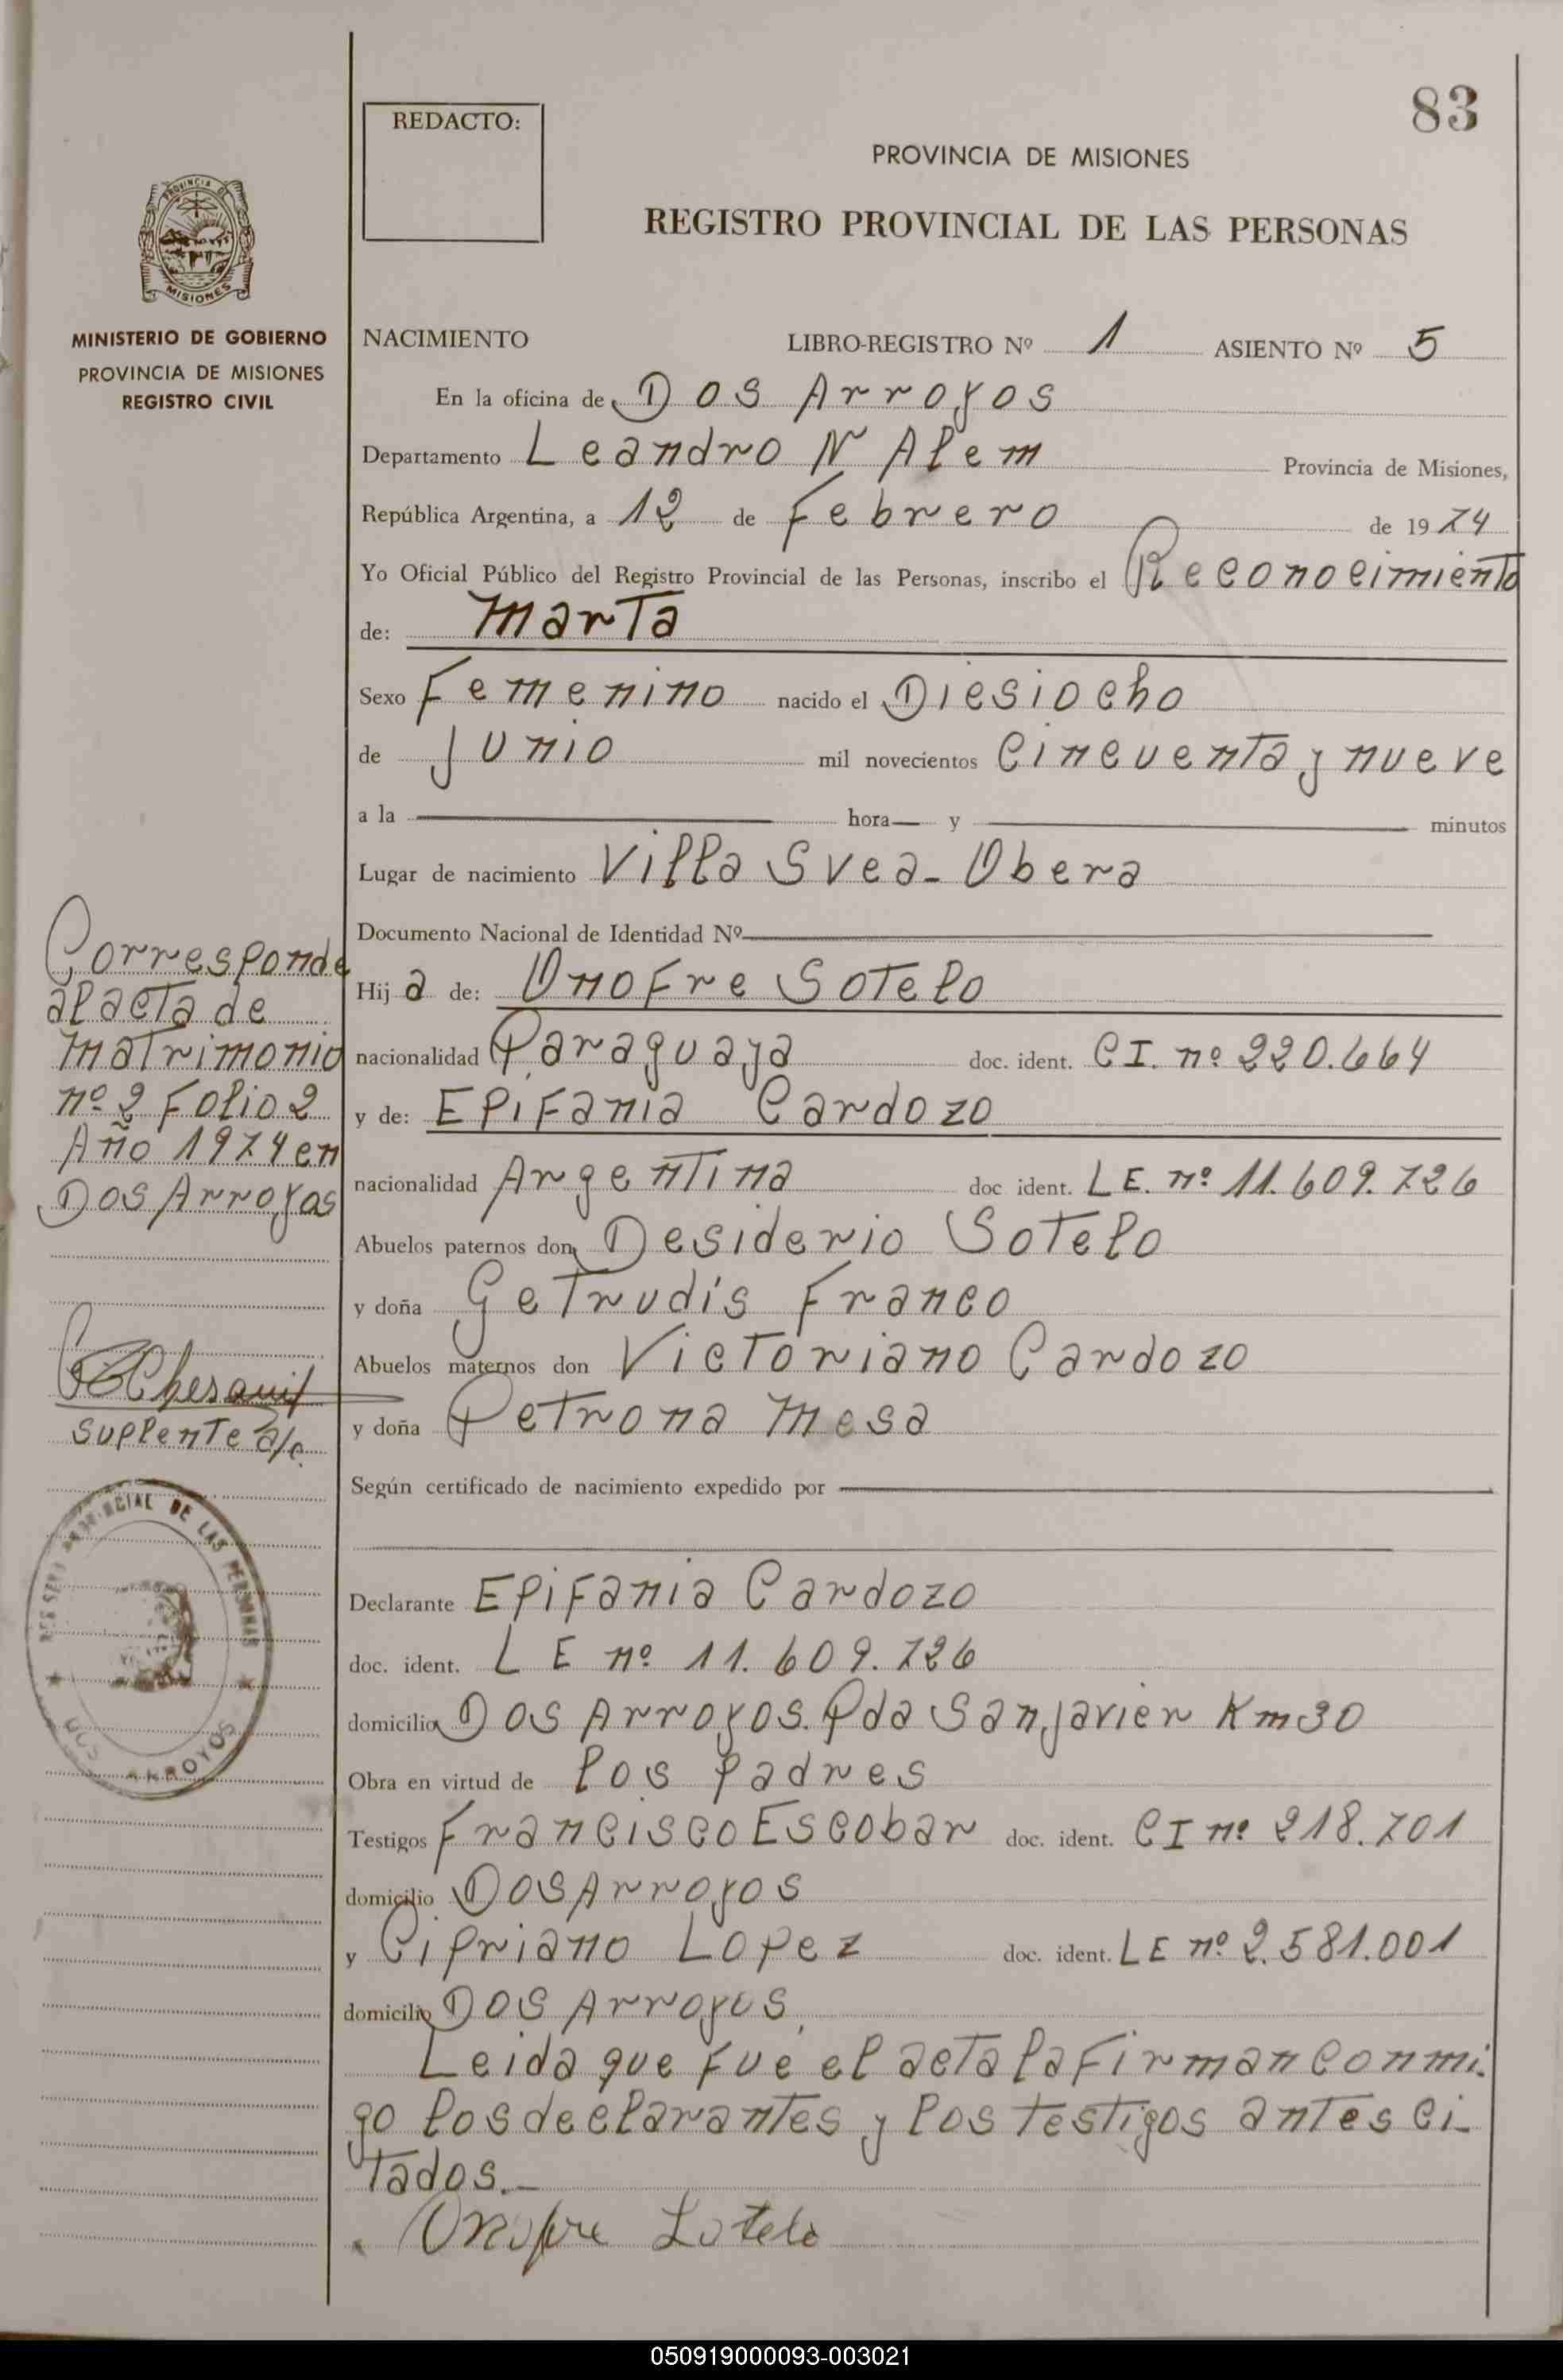 83
REDACTO:
PROVINCIA DE MISIONES
REGISTRO PROVINCIAL DE LAS PERSONAS
PROVINCIA DE
MISIONES
MINISTERIO DE GOBIERNO
PROVINCIA DE MISIONES
REGISTRO CIVIL
NACIMIENTO LIBRO-REGISTRO Nº 1 ASIENTO Nº 5
En la oficina de Dos Arroyos
Departamento Leandro N Alem Provincia de Misiones,
República Argentina, a 12 de Febrero de 1974
Yo Oficial Público del Registro Provincial de las Personas, inscribo el Reconocimiento
de: Marta
Sexo Femenino nacido el Diesiocho
de Junio mil novecientos Cincuenta y nueve
a la hora y minutos
Lugar de nacimiento Villa Svea - Obera
Documento Nacional de Identidad Nº
Hija de: Onofre Sotelo
nacionalidad Paraguaya doc. ident. CI. nº 220.664
y de: Epifania Cardozo
nacionalidad Argentina doc ident. LE. nº 11.609.726
Abuelos paternos don Desiderio Sotelo
y doña Getrudis Franco
Abuelos maternos don Victoriano Cardozo
y doña Petrona Mesa
Según certificado de nacimiento expedido por
Declarante Epifania Cardozo
doc. ident. LE nº 11.609.726
domicilio Dos Arroyos. Pda San Javier Km 30
Obra en virtud de los padres
Testigos Francisco Escobar doc. ident. CI nº 218.701
domicilio Dos Arroyos
y Cipriano Lopez doc. ident. LE nº 2.581.001
domicilio Dos Arroyos
Leida que fué el acta la firman conmi-
go los declarantes y los testigos antes ci-
tados.-
Onofre Sotelo
Corresponde
al acta de
matrimonio
nº 2 Folio 2
Año 1974 en
Dos Arroyos
suplente a/c.
DE LAS PERSONAS
DOS ARROYOS
050919000093-003021